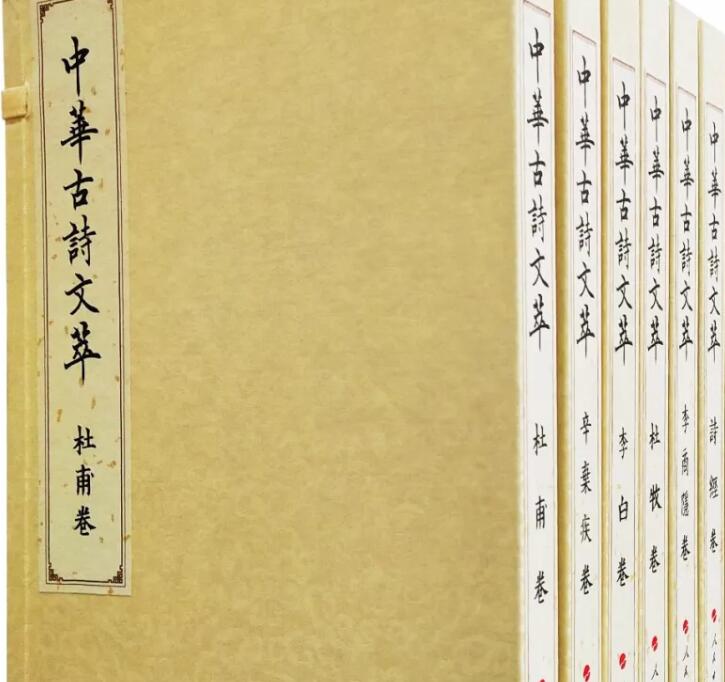 中華古詩文萃
杜甫卷
中華古詩文萃
杜甫卷
中華古詩文萃
辛棄疾卷
中華古詩文萃
李白卷
中華古詩文萃
杜牧卷
人
中華古詩文萃
李商隱卷
人人
中華古詩文萃
詩經卷
人人